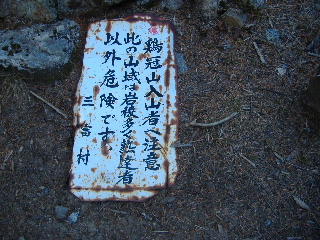 鶏冠山入山者へ注意
此の山域は岩稜多く熟達者
以外危険です。
三富村